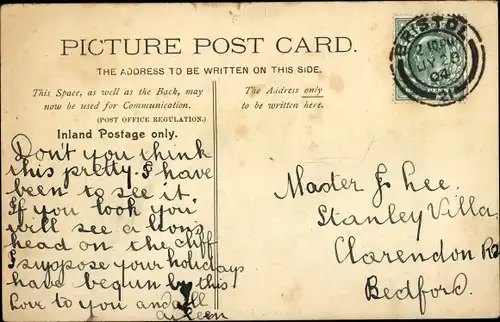 PICTURE POST CARD.
THE ADDRESS TO BE WRITTEN ON THIS SIDE.
This Space, as well as the Back, may
now be used for Communication.
(POST OFFICE REGULATION.)
The Address only
to be written here.
Inland Postage only.
Don't you think
this pretty. I have
been to see it.
If you look you
will see a lion's
head on the cliff
I suppose your holidays
have begun by this
love to you and all
Aileen
Master J. Lee.
Stanley Villa
Clarendon Rd
Bedford.
BRISTOL
JY 28
04